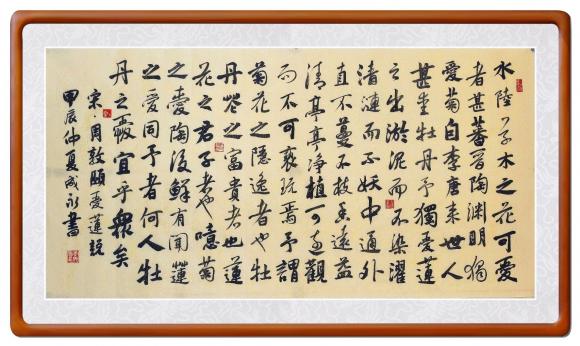 水陸草木之花可愛
者甚蕃晉陶淵明獨
愛菊自李唐来世人
甚愛牡丹予獨愛蓮
之出淤泥而不染濯
清漣而不妖中通外
直不蔓不枝香遠益
清亭亭淨植可遠觀
而不可褻玩焉予謂
菊花之隱逸者也牡
丹花之富貴者也蓮
花之君子者也噫菊
之愛陶後鮮有聞蓮
之愛同予者何人牡
丹之愛宜乎衆矣
宋·周敦頤愛蓮説
甲辰仲夏成永書